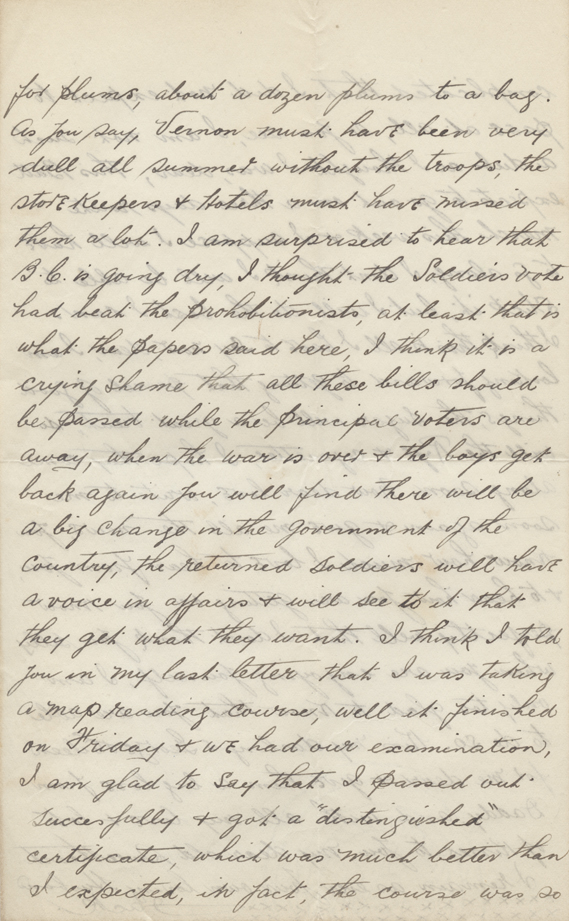 for plums, about a dozen plums to a bag.
As you say, Vernon must have been very
dull all summer without the troops, the
storekeepers & Hotels must have missed
them a lot. I am surprised to hear that
B.C. is going dry, I thought the Soldiers vote
had beat the prohobitionists, at least that is
what the papers said here, I think it is a
crying shame that all these bills should
be passed while the principal voters are
away, when the war is over & the boys get
back again you will find there will be
a big change in the government of the
Country, the returned soldiers will have
a voice in affairs & will see to it that
they get what they want. I think I told
you in my last letter that I was taking
a map reading course, well it finished
on Friday & we had our examination,
I am glad to say that I passed out
succesfully & got a "distingished"
certificate, which was much better than
I expected, in fact, the course was so